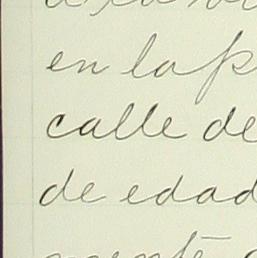 en la p
calle de
de edad